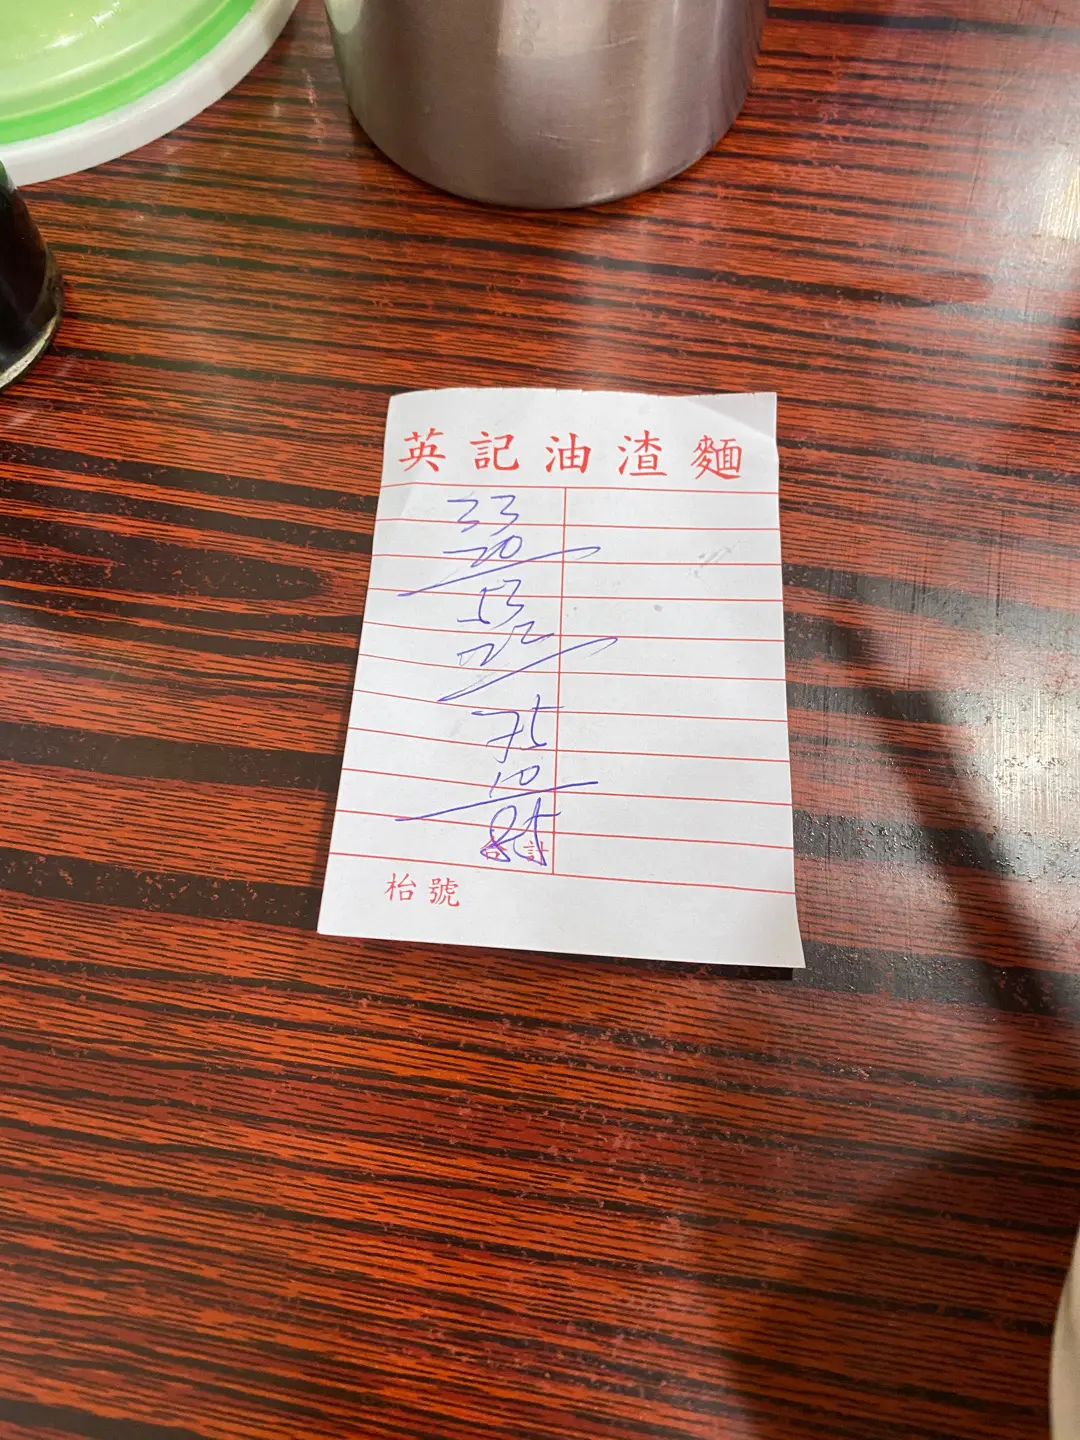 英記油渣麵
33
20
53
22
75
10
85
合計
枱號